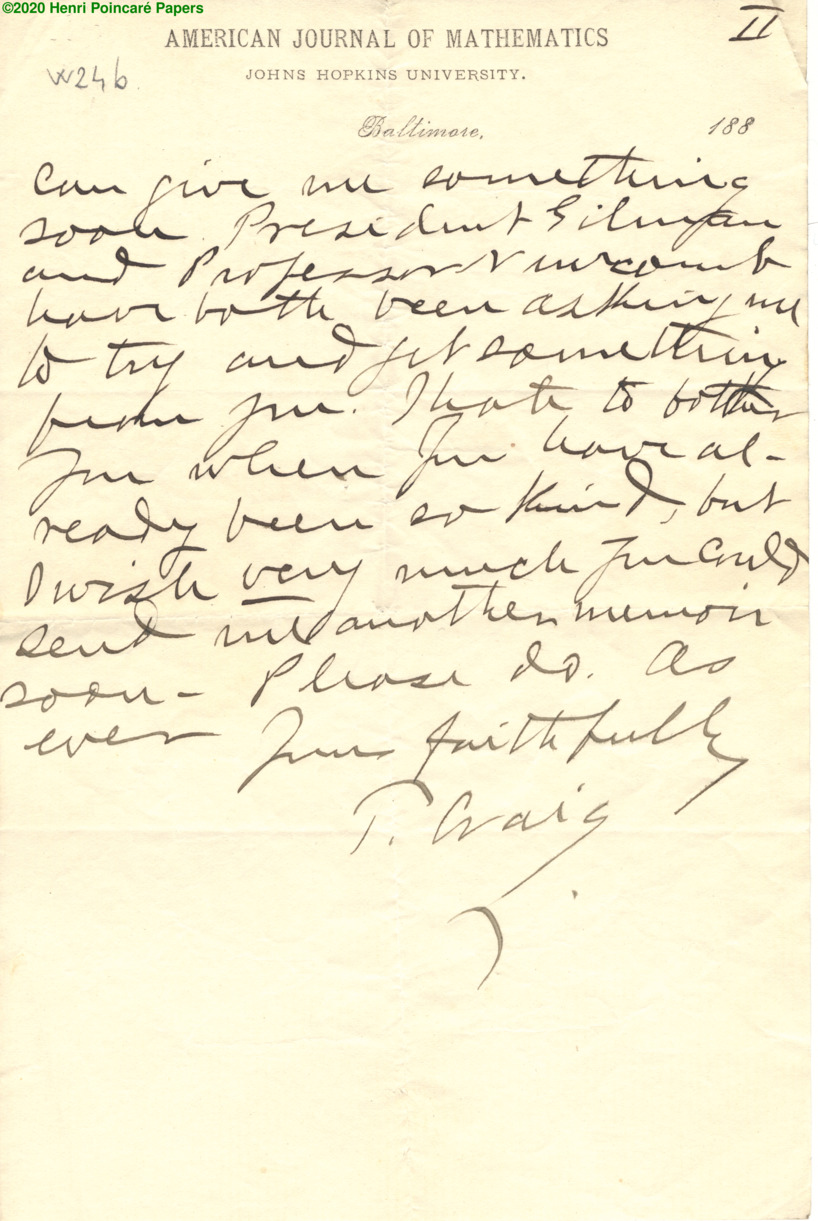 ©2020 Henri Poincaré Papers
II
AMERICAN JOURNAL OF MATHEMATICS
W24b
JOHNS HOPKINS UNIVERSITY.
Baltimore, 188
can give me something
soon. President Gilman
and Professor Newcomb
have both been asking me
to try and get something
from you. I hate to bother
you when you have al-
ready been so kind, but
I wish very much you could
send me another memoir
soon – Please do. As
ever Yours faithfully
T. Craig